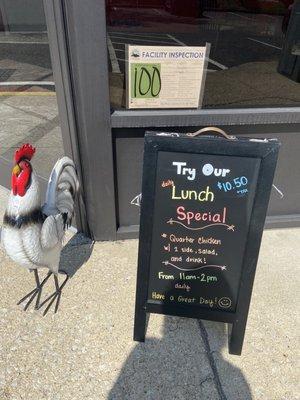 FACILITY INSPECTION
100
Try Our
daily
Lunch $10.50
Special
* Quarter Chicken
w/ 1 side, salad,
and drink!
From 11am-2pm
daily
Have a Great Day!